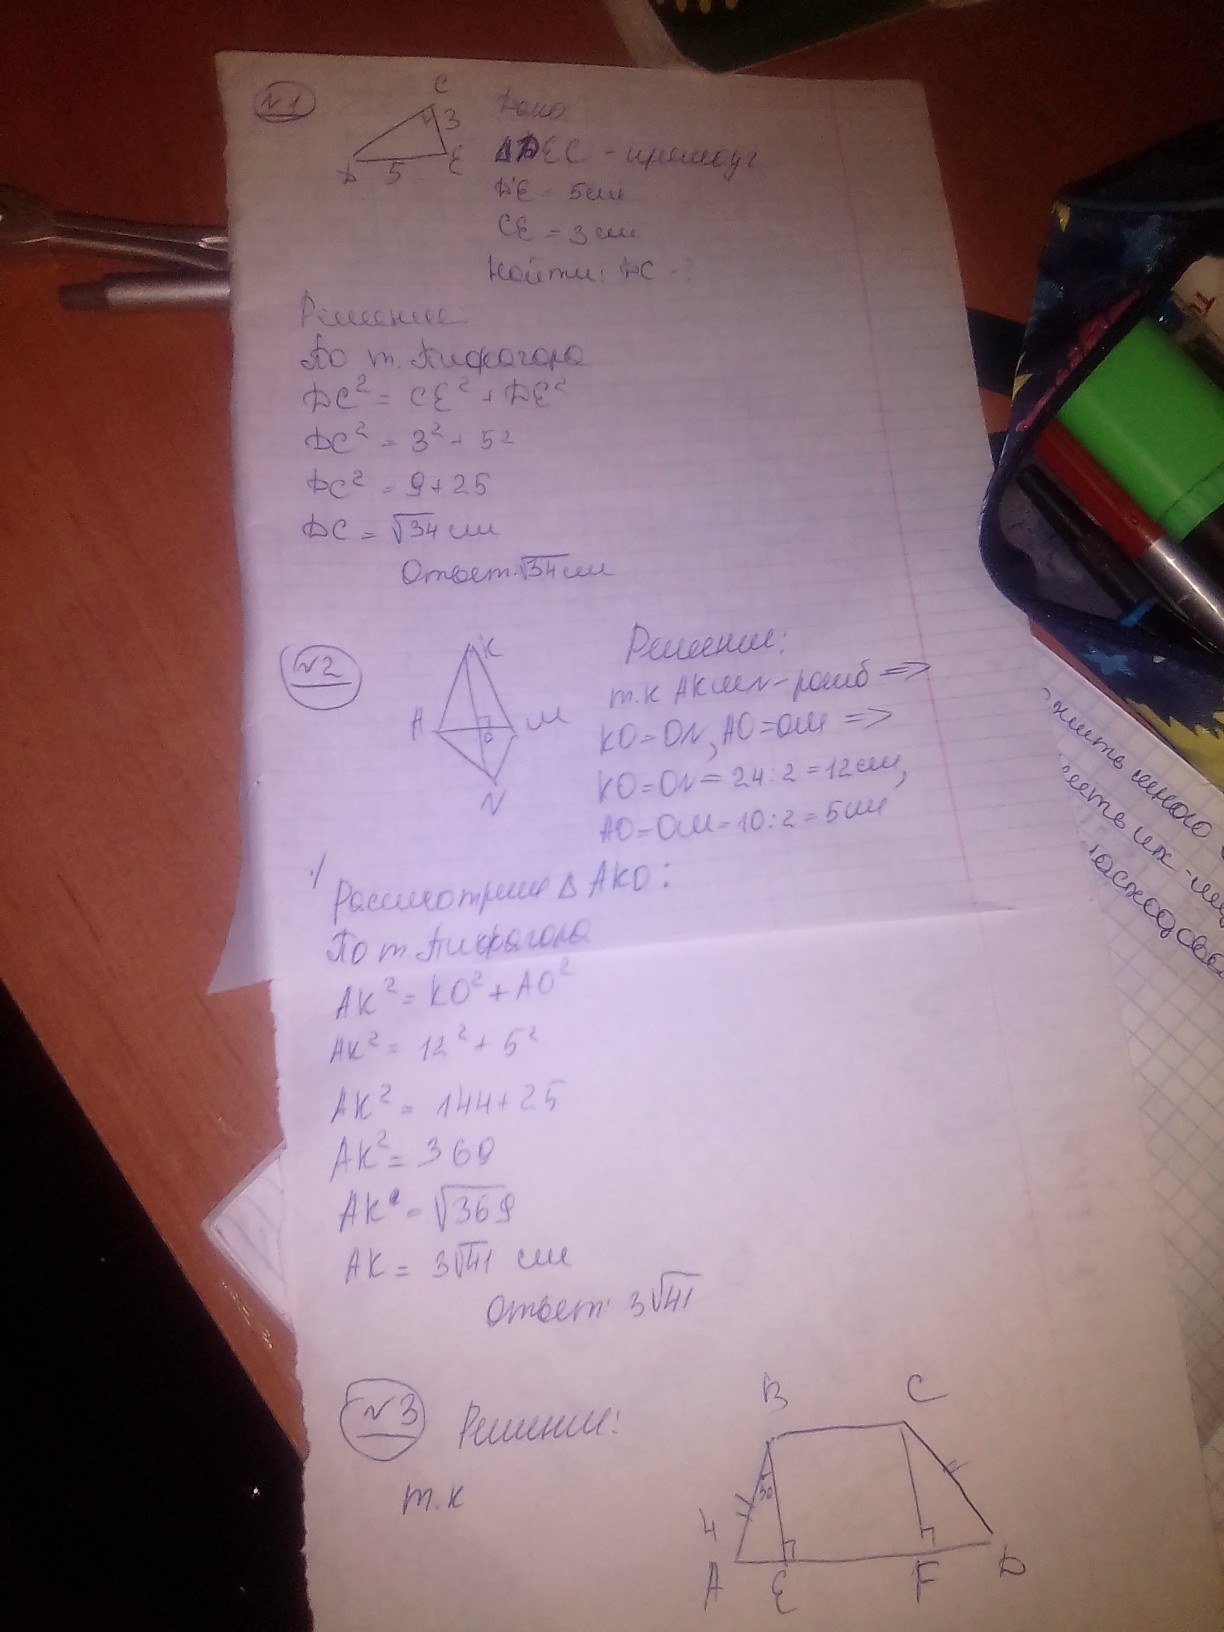 №1
C
3
D
5
E
Дано
ΔDEC - прямоуг
DE - 5см
CE = 3см
Найти: DC - ?
Решение:
По т. Пифагора
DC² = CE² + DE²
DC² = 3² + 5²
DC² = 9+25
DC = √34 см
Ответ: √34 см
№2
K
A
M
O
N
Решение:
т.к AKMN - ромб =>
KO=ON, AO=OM =>
KO=ON=24:2=12см,
AO=OM=10:2=5см
Рассмотрим Δ AKO:
По т. Пифагора
AK² = KO² + AO²
AK² = 12² + 5²
AK² = 144+25
AK² = 369
AK = √369
AK = 3√41 см
Ответ: 3√41
№3
Решение:
т.к
B
C
30
4
A
E
F
D
жить много
их